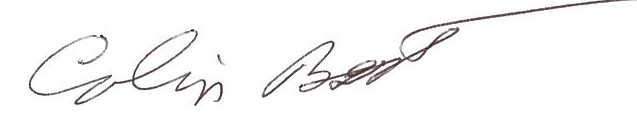 Colin Best